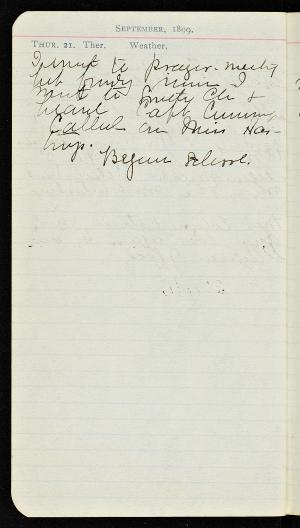 SEPTEMBER, 1899.
THUR. 21. Ther. Weather.
I went to prayer-meeting
but finding I
went to Trinity Ch &
heard Capt Cumming
Called on Miss Has-
tings.
Began School.